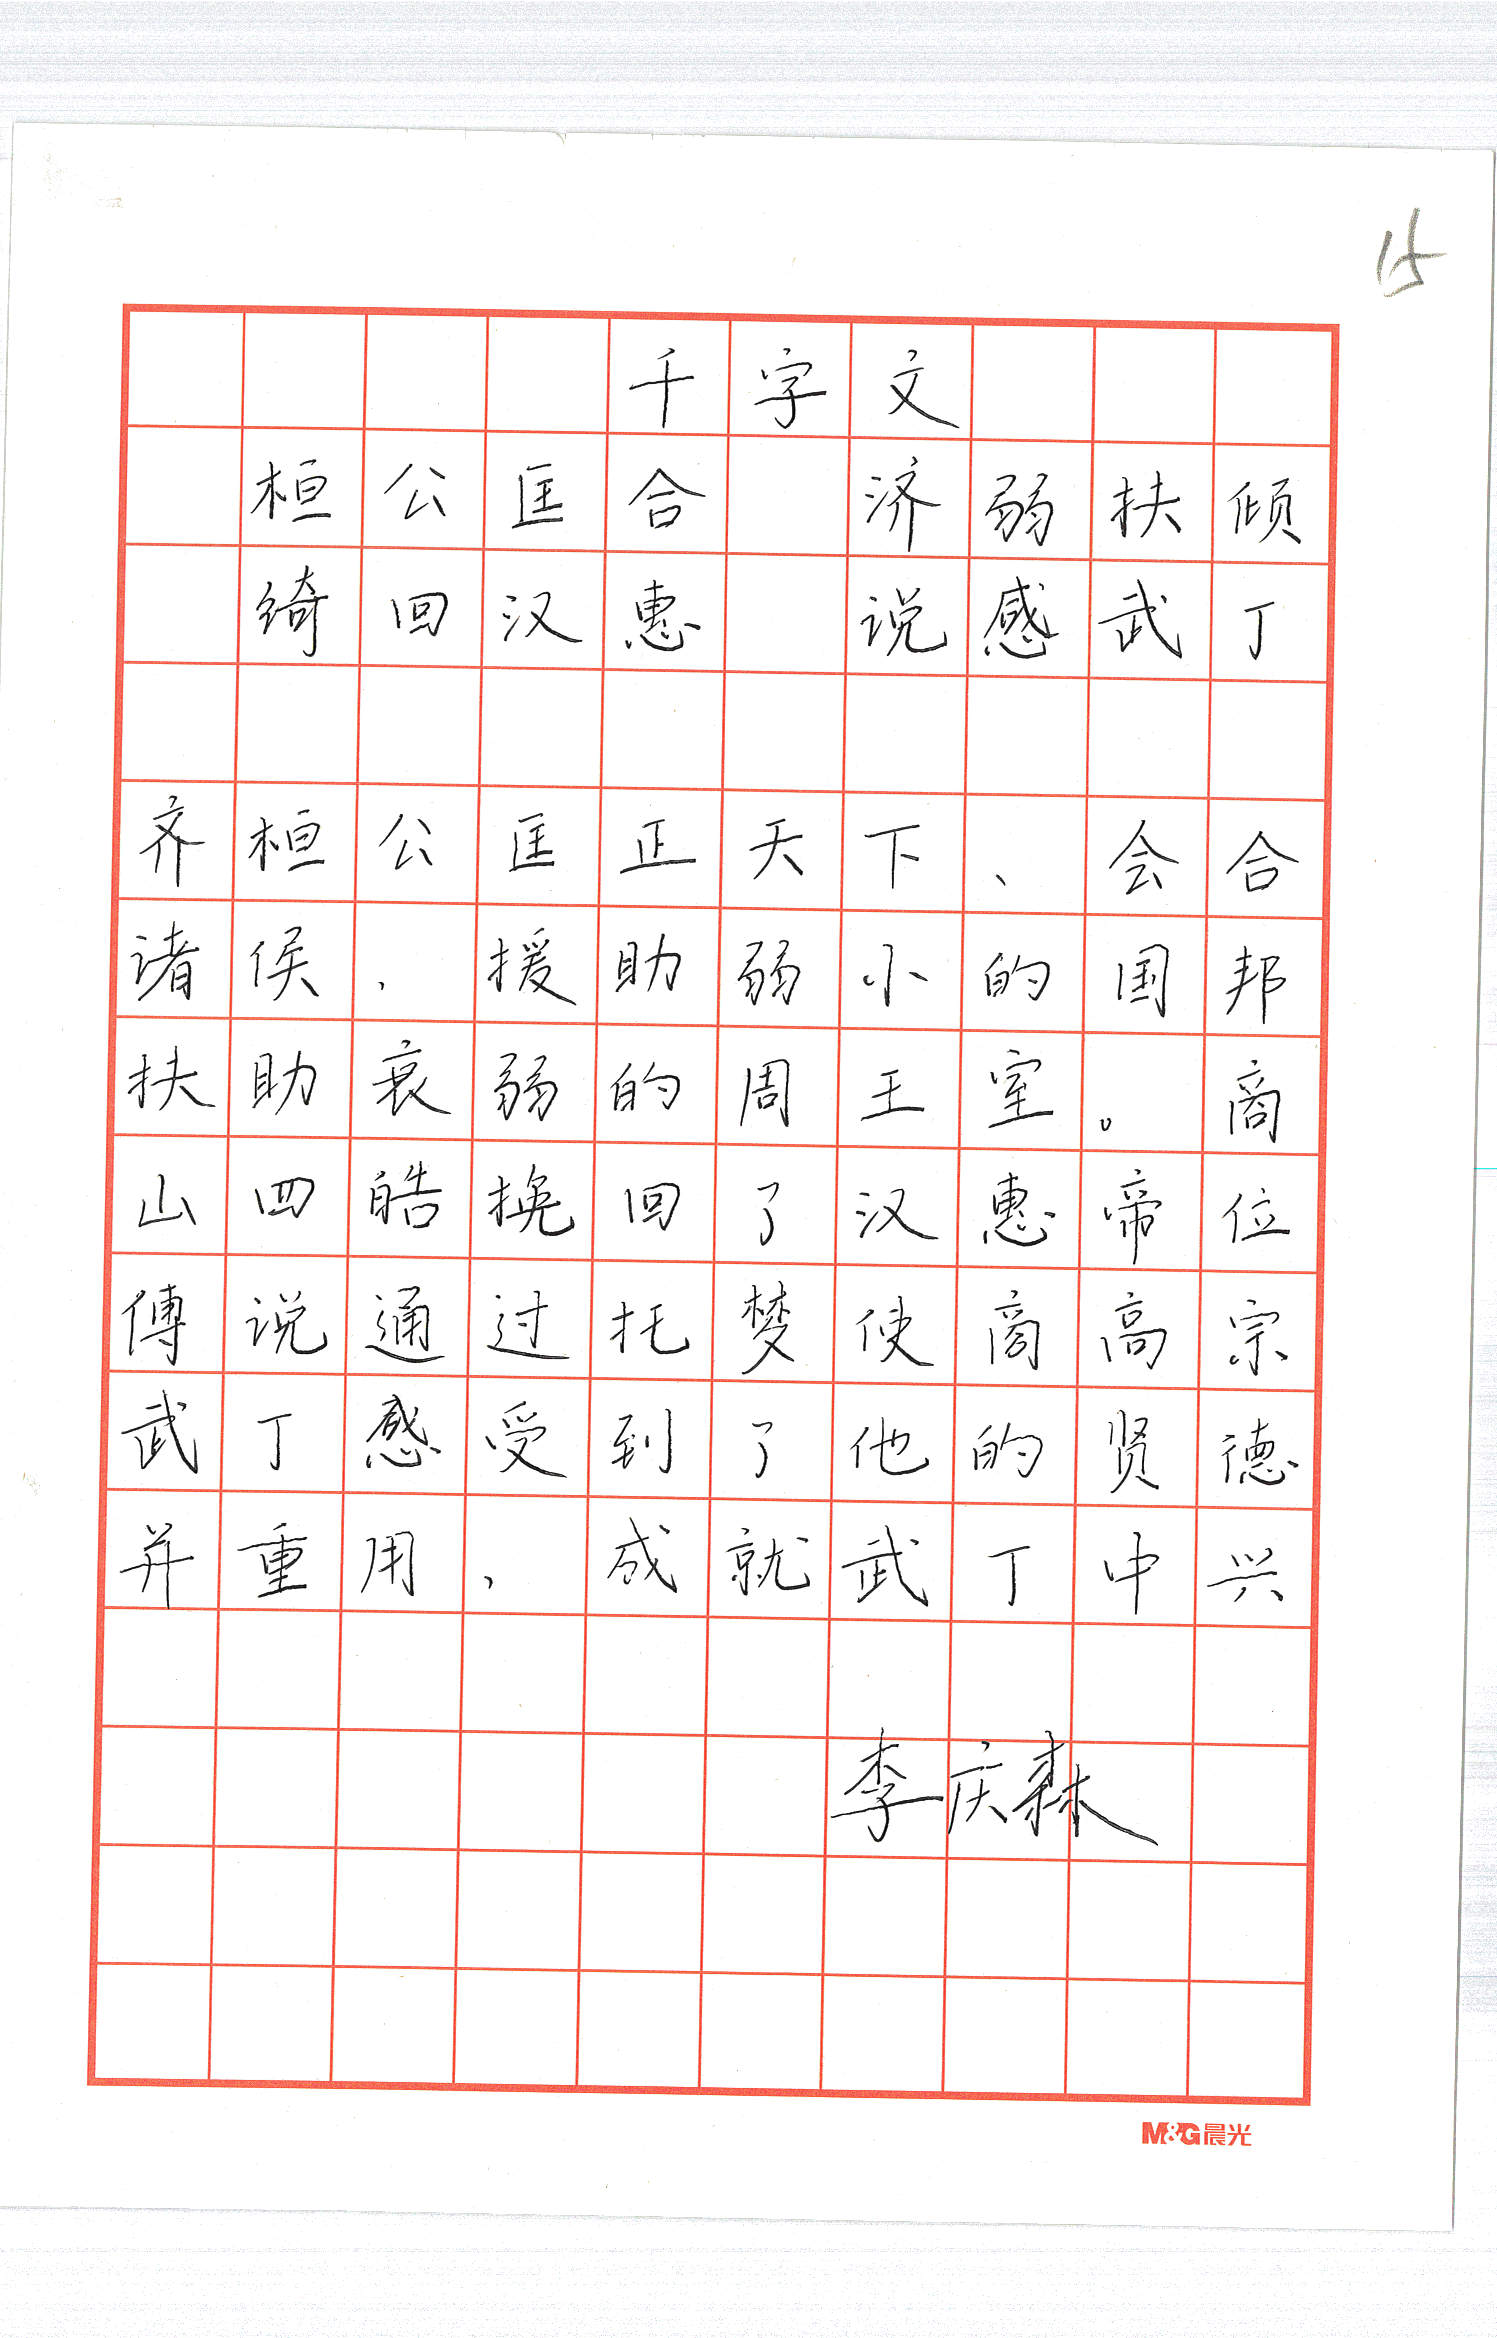 15
千字文
桓公匡合 济弱扶倾
绮回汉惠 说感武丁
齐桓公匡正天下、会合
诸侯，援助弱小的国邦
扶助衰弱的周王室。商
山四皓挽回了汉惠帝位
傅说通过托梦使商高宗
武丁感受到了他的贤德
并重用，成就武丁中兴
李庆森
M&G晨光